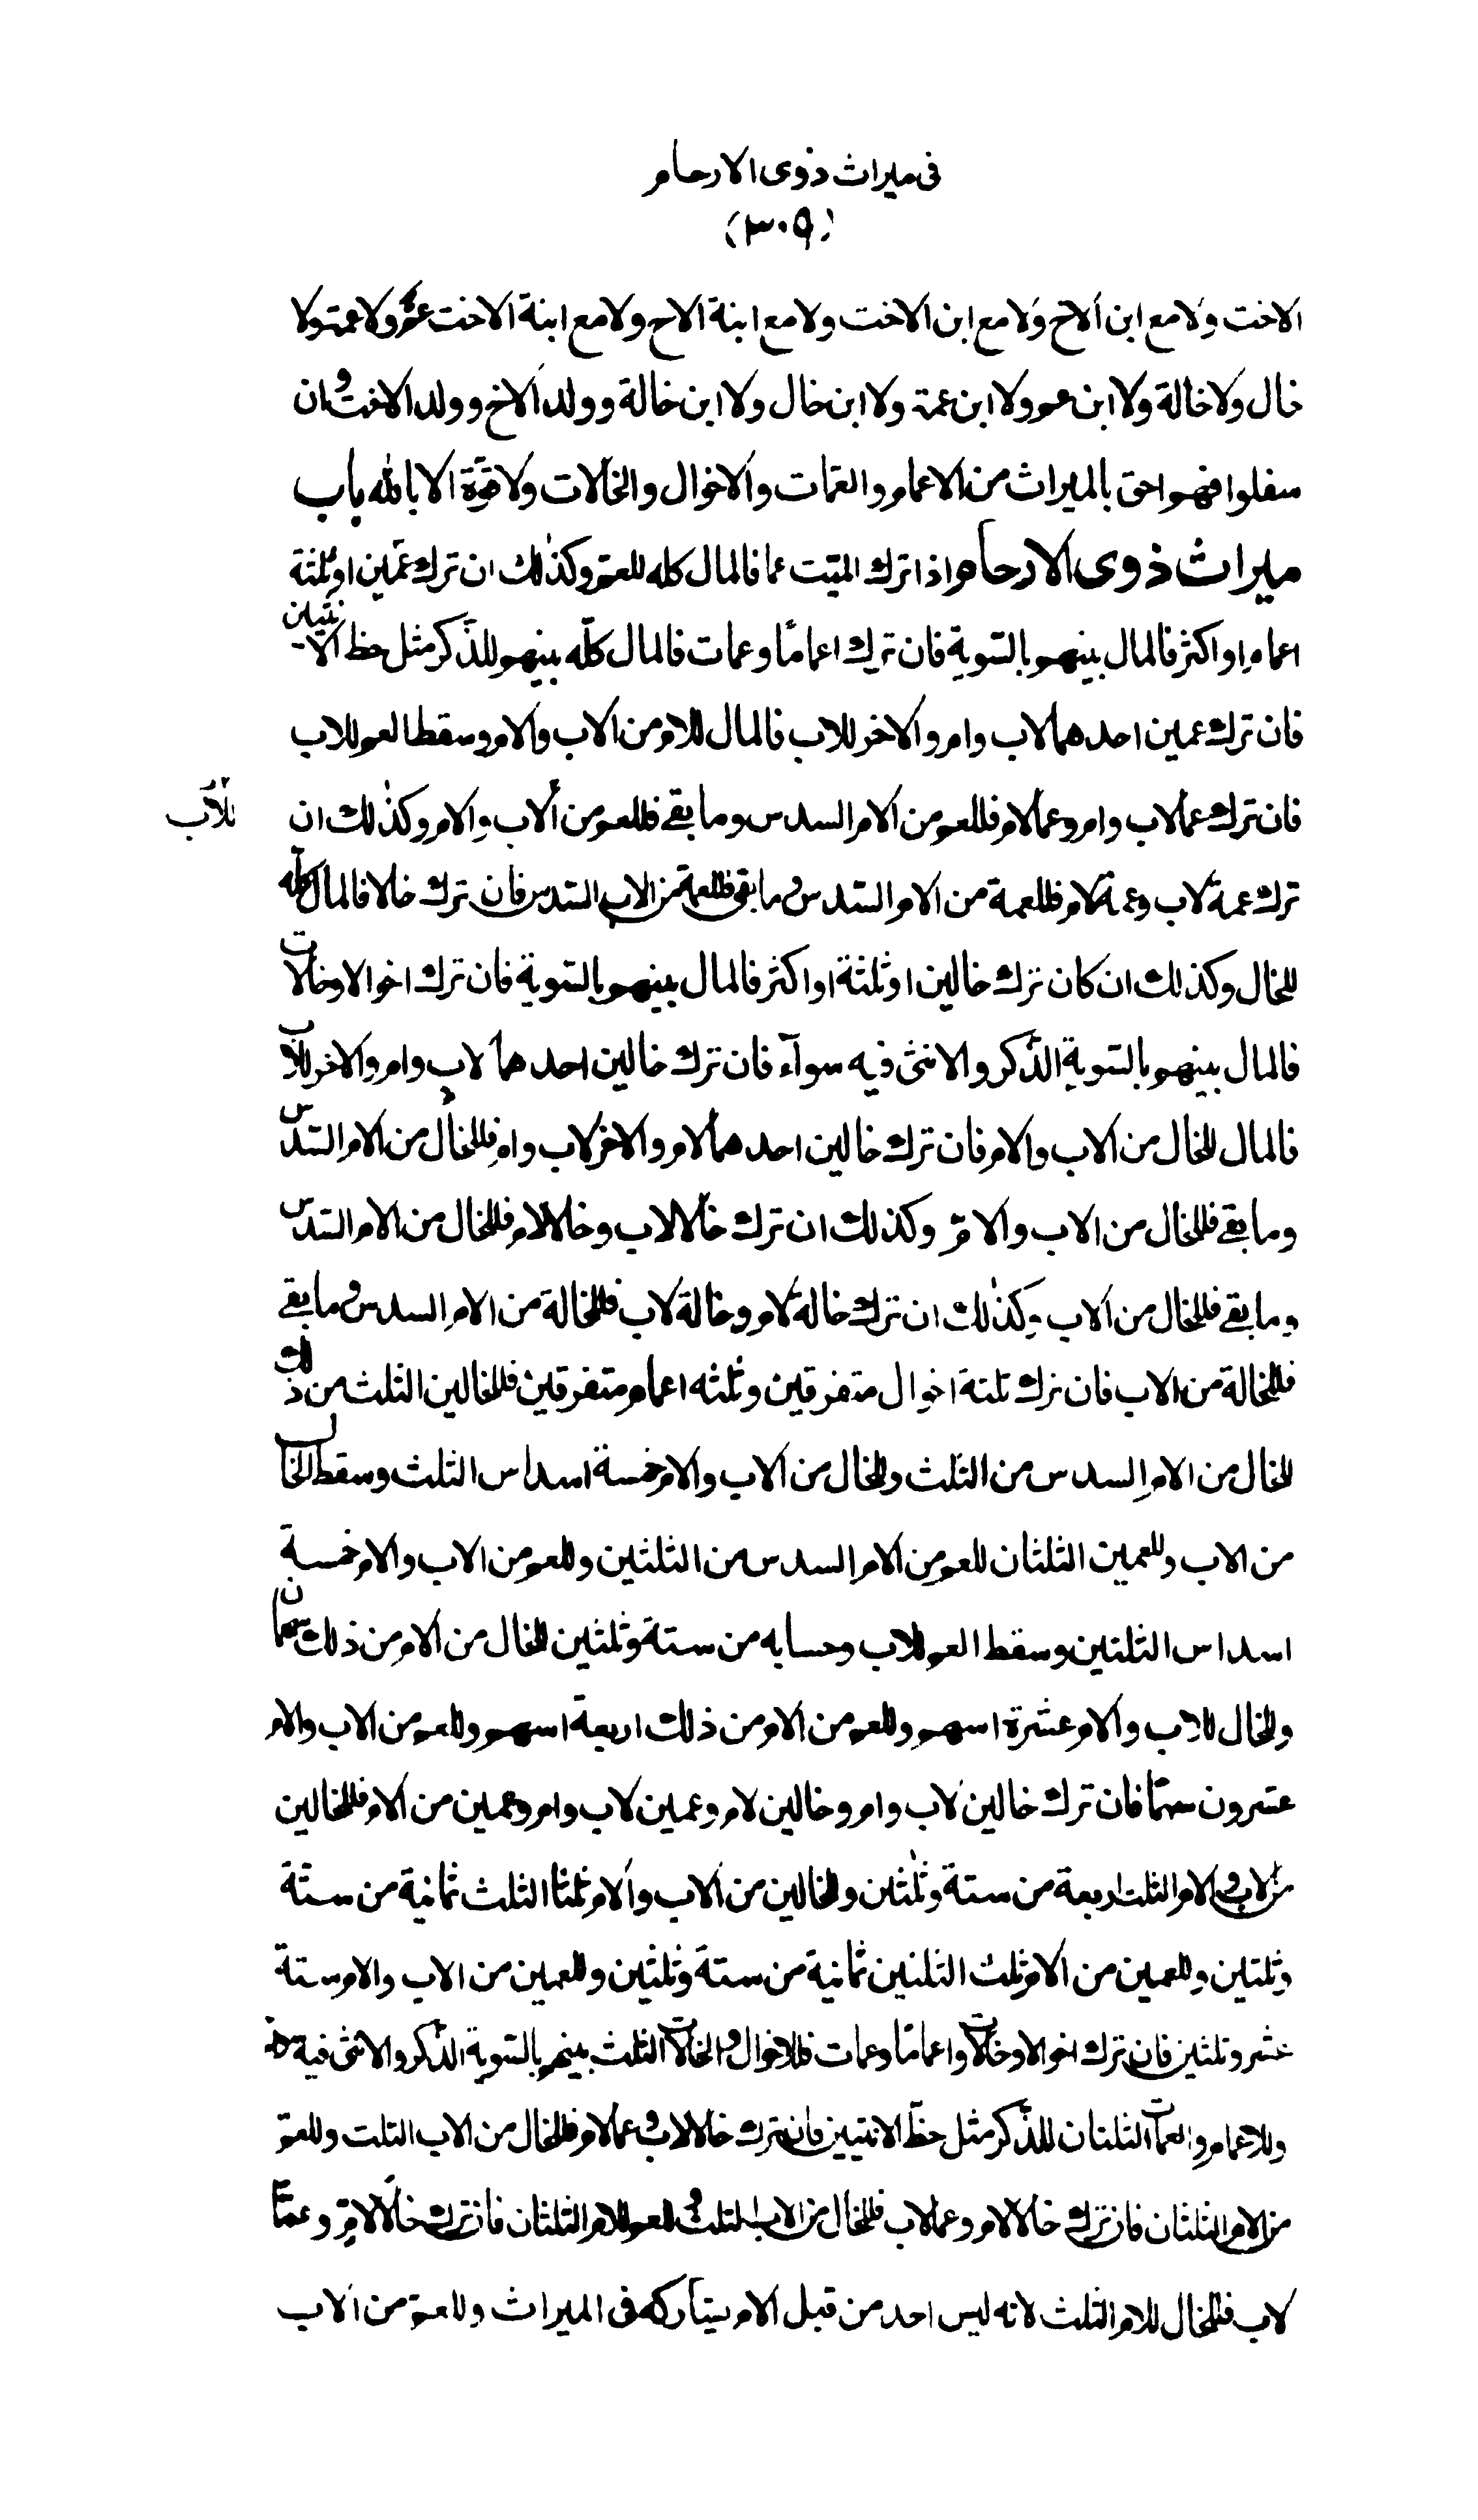 فى ميراث ذوى الارحام
(٣٠٩)
الاخت ولا مع ابن الاخ ولا مع ابن الاخت ولا مع ابنة الاخ ولا مع ابنة الاخت عم ولا عمة ولا
خال ولا خالة ولا ابن عم ولا ابن عمة ولا ابن خال ولا ابن خالة وولد الاخ وولد الاخت وان
سفلوا فهم احق بالميراث من الاعمام والعمات والاخوال والخالات ولا قوة الا بالله باب
ميراث ذوى الارحام اذا ترك الميّت عما فالمال كله للعم وكذلك ان ترك عمّين او ثلثة
اعمام او اكثر فالمال بينهم بالسّوية فان ترك اعمامًا وعمات فالمال كلّه بينهم للذّكر مثل حظ الانثيين
فان ترك عمين احدهما لاب وام والاخر للاب فالمال للام من الاب والام وسقط العم للاب
فان ترك عما لاب وام وعما لام فللعم من الام السدس وما بقے فللعم من الاب والام وكذلك ان
للاب
ترك عمة لاب وعمة لام فللعمة من الام السّدس وما بقى فللعمة من الاب السّدس فان ترك خالا فالمال كلّه
للخال وكذلك ان كان ترك خالين او ثلثة او اكثر فالمال بينهم بالسّوية فان ترك اخوالا وخالات
فالمال بينهم بالسّوية الذّكر والانثى فيه سوآء فان ترك خالين احدهما لاب وام والاخر للاب
فالمال للخال من الاب والام فان ترك خالين احدهما لام والاخر لاب وام فللخال من الام السّدس
وما بقے فللخال من الاب والامّ وكذلك ان ترك خالا لاب وخالا لام فللخال من الام السّدس
وما بقے فللخال من الاب وكذلك ان ترك خالة لام وخالة لاب فللخالة من الام السدس وما بقے
فللخالة من الاب فان ترك ثلثة اخوال متفرقين وثلثه اعمام متفرقين فللخالين الثلث من ذلك
للخال من الام السدس من الثلث وللخال من الاب والام خمسة اسداس الثلث وسقط الخال
من الاب وللعمين الثلثان للعم من الام السدس من الثلثين وللعم من الاب والام خمسة
اسداس الثلثين وسقط العم للاب وحسابه من ستة وثلثين للخال من الام من ذلك سهمان
وللخال للاب والام عشرة اسهم وللعم من الام من ذلك اربعة اسهم وللعم من الاب والام
عشرون سهمًا فان ترك خالين لاب وام وخالين لام وعمين لاب وام وعمين من الام فللخالين
من الاب والام الثلث اربعة من ستة وثلثين وللخالين من الاب والام ثلثا الثلث ثمانية من ستّة
وثلثين وللعمين من الام ثلث الثلثين ثمانية من ستة وثلثين وللعمين من الاب والام ستة
عشر وثلثين فان ترك اخوالا وخالات واعمامًا وعمات فللاخوال والخالات الثلث بينهم بالسّوية الذّكر والانثى فيه
وللاعمام والعمات الثلثان للذّكر مثل حظّ الانثيين فان ترك خالا لاب وعما لام فللخال من الاب الثلث وللعمّ
من الام الثلثان فان ترك خالا لام وعما لاب فللخال من الاب الثلث وللعم للام الثلثان فان ترك خالا لامّ وعمّا
لاب فللخال للام الثلث لانه ليس احد من قبل الام يشاركه فى الميراث وللعمّ من الاب